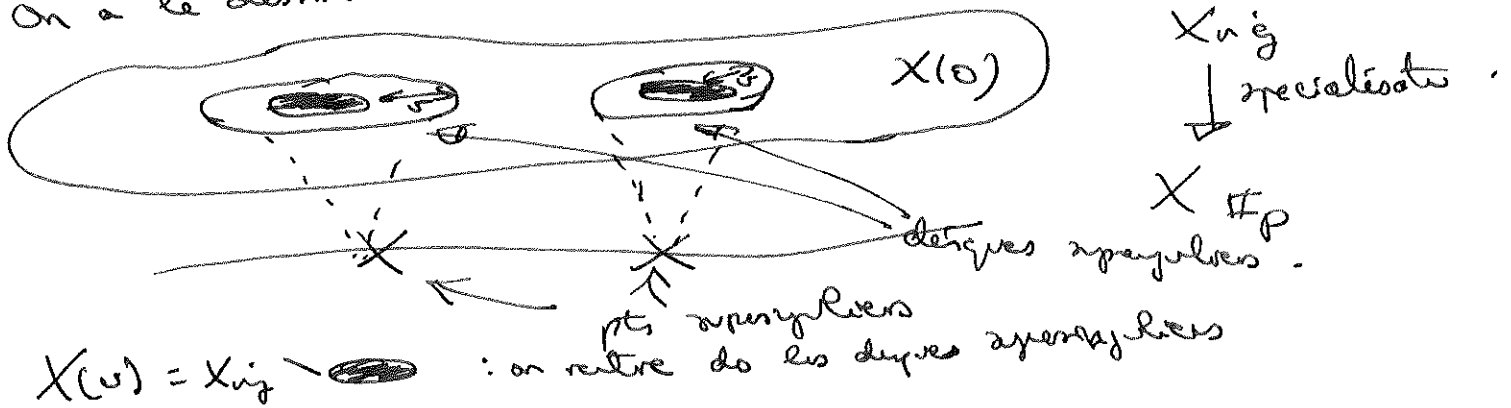 On a le dessin
X(0)
v
v
X rig
↓ spécialisation.
X F_p
disques supersinguliers.
pts supersinguliers
X(v) = X rig \ : on rentre ds les disques supersinguliers